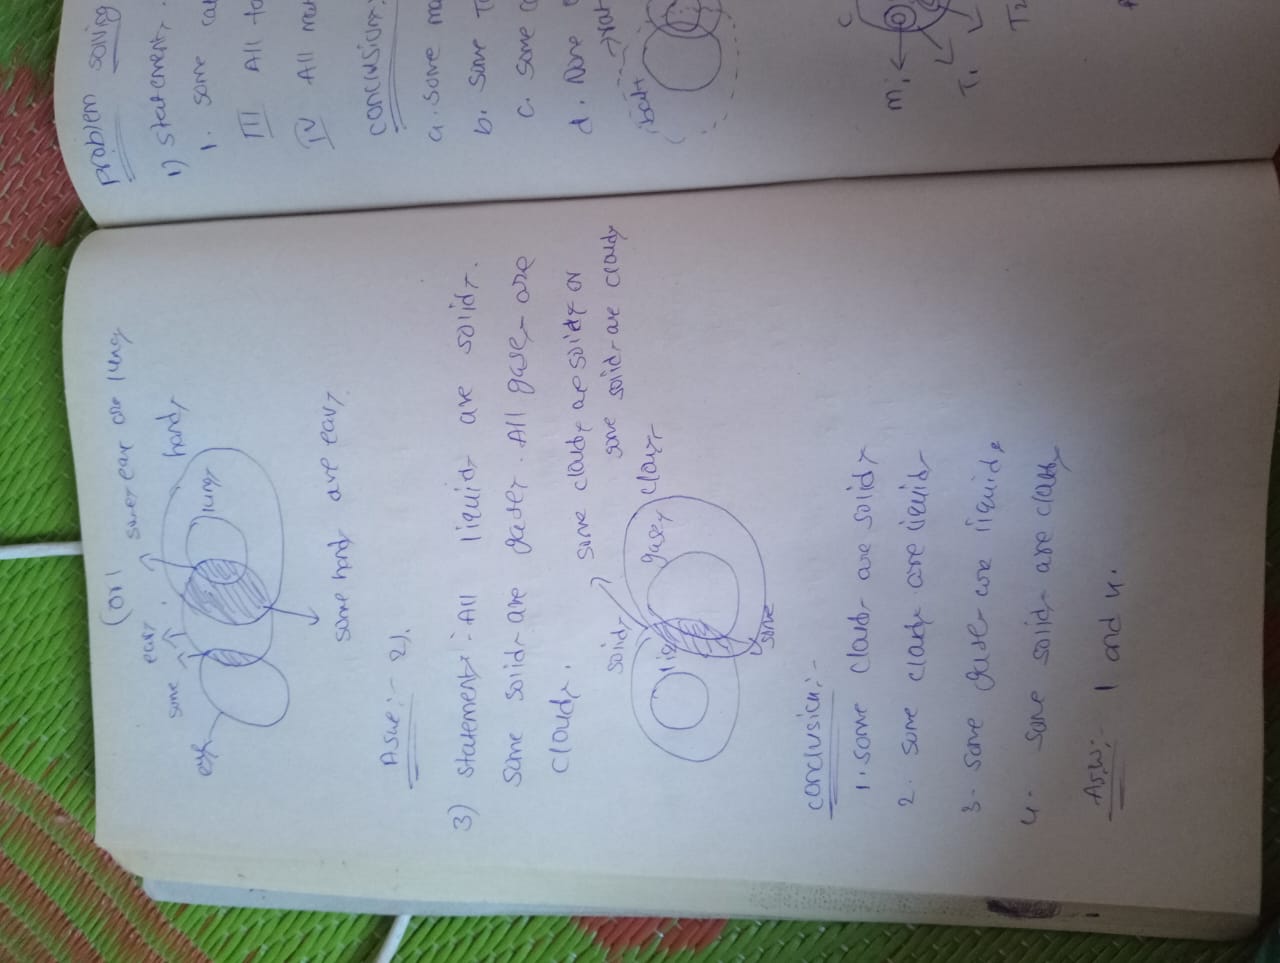 (or) some ear are lung
ears
some
hands
lungs
eye
some hand are ears
Answ:- 2).
3) statements:- All liquids are solids.
Some solids are gases. All gases are
clouds.
some clouds are solids or
some solids are clouds
solids
liq
gases
clouds
some
conclusion:-
1. some clouds are solids
2. some clouds are liquids
3. some gases are liquids
4. some solids are clouds
Answ:- 1 and 4.
problem solving
1) statements
1. some
III All
IV All
conclusions:
a. some
b. some
c. some
d. None
bats
rat
c
m1
T1
T2